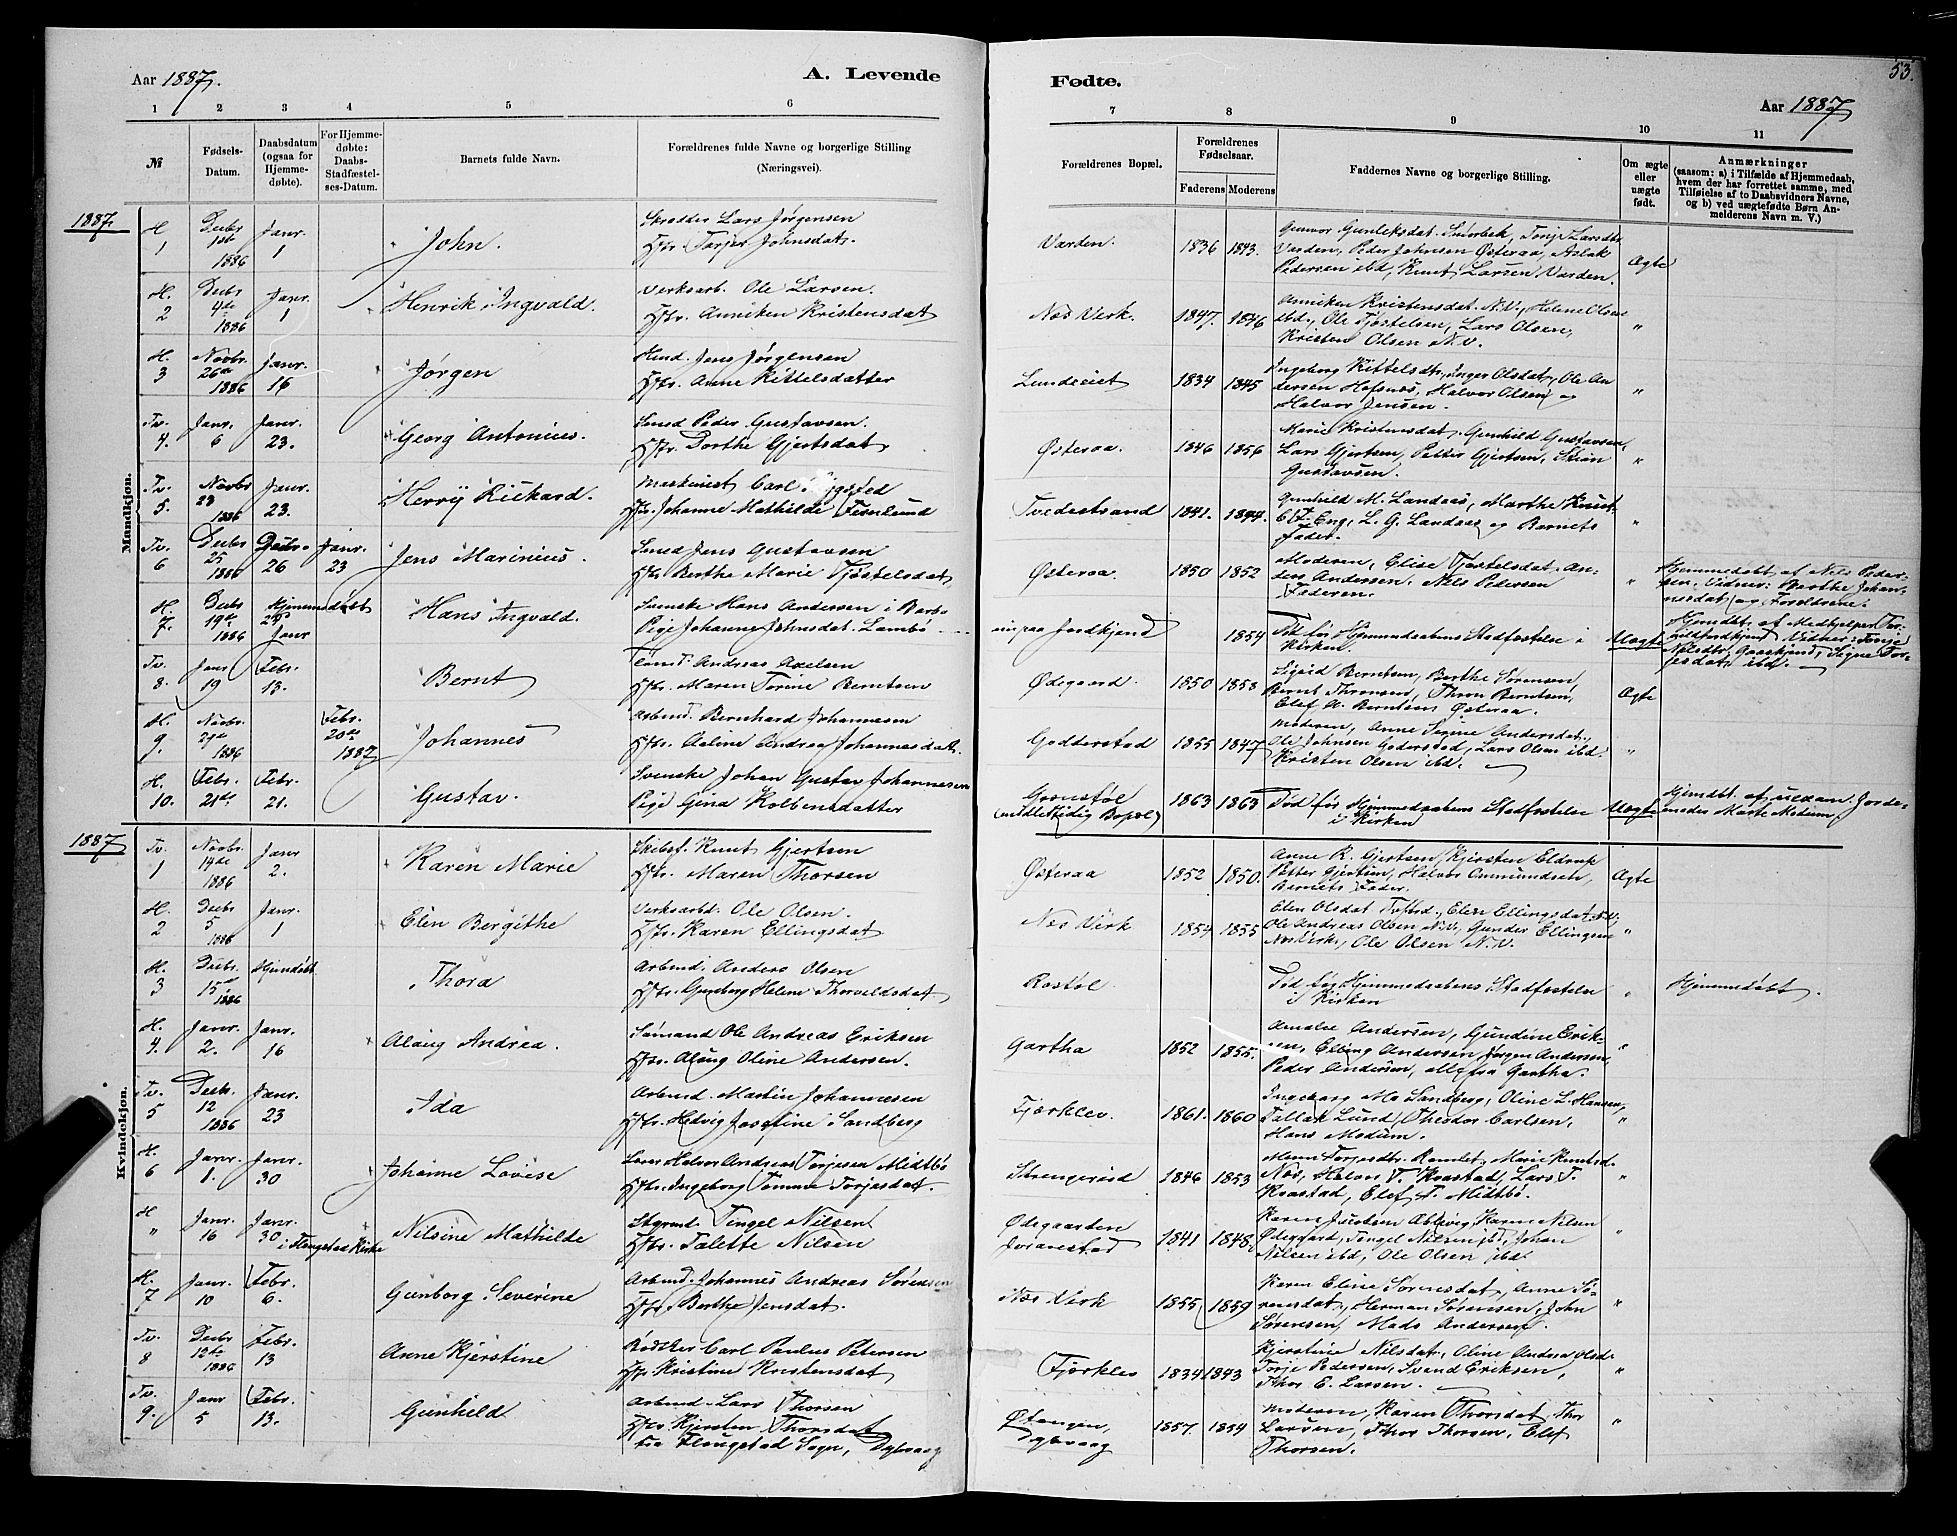 53.
Aar 1887.
A. Levende
Fødte.
Aar 1887
1 2 3 4 5 6
7 8 9 10 11
№
Fødsels-
Datum.
Daabsdatum
(ogsaa for
Hjemme-
døbte).
For Hjemme-
døbte:
Daabs-
Stadfæstel-
ses-Datum.
Barnets fulde Navn.
Forældrenes fulde Navne og borgerlige Stilling
(Næringsvei).
Forældrenes Bopæl.
Forældrenes
Fødselsaar.
Faderens Moderens
Faddernes Navne og borgerlige Stilling.
Om ægte
eller
uægte
født.
Anmærkninger
(saasom: a) i Tilfælde af Hjemmedaab,
hvem der har forrettet samme, med
Tilføielse af to Daabsvidners Navne,
og b) ved uægtefødte Børn An-
melderens Navn m. V.)
Mandkjøn.
1887.
H. 1
Decbr 1ste 1886
Janr. 1
John.
Skrædder Lars Jørgensen
Hstr. Torjer Johnsdat.
Varden.
1836 1843.
Gunvor Gunleksdat. Smorbek, Torje Larsdtr
Varden, Peder Johnsen Østeraa, Aslak
Pedersen ibd, Knut Larsen Varden.
Ægte
H. 2
Decbr 4de 1886
Janr. 1
Henrik Ingvald.
Verksarb. Ole Larsen.
Hstr. Anniken Kristensdat
Næs Verk.
1847. 1846
Anniken Kristensdat. N.V., Helene Olsen
ibd., Ole Tjøstelsen, Lars Olsen,
Kristen Olsen N.V.
"
H. 3
Novbr. 26de 1886
Janr. 16
Jørgen
Husd. Jens Jørgensen
Hstr. Anne Kittelsdatter
Lundeeiet
1834 1845
Ingeborg Kittelsdtr, Inger Olsdat, Ole An
dersen Hofsnæs, Halvor Olsen og
Halvor Jensen.
"
Tv. 4.
Janr. 6
Janr. 23.
Georg Antonius.
Smed Peder Gustavsen.
Hstr. Dorthe Gjertsdat
Østeraa.
1846 1856
Marie Kristensdat. Gunhild Gustavsen,
Lars Gjertsen, Petter Gjertsen,
Gustavsen.
"
Tv. 5.
Novbr 23 1886
Janr. 23.
Herrÿ Rickard.
Maskinist Carl
Hstr. Johanne Mathilde
Tvedestrand
1841. 1844.
Gunhild M. Landaas, Marthe Knut
Eng, L. G. Landaas og Barnets
Fader.
"
Tv. 6
Decbr 25 1886
Decbr. 26
Janr. 23
Jens Marinius.
Smed Jens Gustavsen
Hstr Berthe Marie Tjøstelsdat
Østeraa.
1850 1852
Moderen, Elise Tjøstelsdat. An-
ders Andersen. Nils Pedersen
Federen.
"
Hjemmedøbt af Nils Peder-
sen. Vidner: Berthe Johan-
nesdat og Forældrene.
H. 7.
Decbr 19de 1886
Hjemmedøbt 29 Janr
Hans Ingvald.
Svenske Hans Andersen i Barbo
Pige Johanne Johnsdat. Lambo
Jordkjend
1854
Død før Hjemmedaabens Stadfæstelse i
Kirken.
Uægte
Hjemdbt. af Medhjelper Tor-
Jordkjend Vidner: Torje
Nilsdtr. Gaaskjend, Signe Tor-
jesdat, ibd.
Tv. 8.
Janr 19
Febr. 13.
Bernt
Tømd. Andreas Axelsen
Hstr. Maren Torine Berntsen
Ødegaard.
1850 1853
Sigrid Berntsen, Berthe Sørensen
Bernt Thronsen, Thron Berntsen,
Elef A. Berntsens Østeraa.
Ægte
H. 9.
Novbr. 1886
Febr. 20de 1887
Johannes
Arbmd. Bernhard Johannesen
Hstr. Aaline Andrea Johannesdat.
Godderstad
1855 1847
Moderen, Anne Serine Andersdat.,
Ole Johnsen Goderstad, Lars Olsen ibd
Kristen Olsen ibd.
"
H. 10.
Febr. 21de
Febr. 21.
Gustav.
Svenske Johan Gustav Johannesen
Pige Gina Kolbensdatter
Grønstøl
(midlertidig Bopæl)
1863 1863
Død før Hjemmedaabens Stadfæstelse
i Kirken
Uægte
Hjemdbt. af uexam. Jorde-
moder Marte Modum
Kvindekjøn.
1887
Tv. 1
Novbr 14de 1886
Janr 2.
Karen Marie
Skibsf. Knut Gjertsen
Hstr. Maren Thorsen
Østeraa
1852 1850.
Anne K. Gjertsen, Kjersten Eldrup
Petter Gjertsen, Halvor Ommundsen,
Barnets Fader.
Ægte
H. 2
Decbr 5 1886
Janr. 1
Elen Bergithe
Verksarbd. Ole Olsen.
Hstr. Karen Ellingsdat
Næs Verk
1854 1855
Elen Olsdat, Elen Ellingsdat
Ole Andreas Olsen N.V., Gunder Ellingsen
Næs Verk, Ole Olsen N.V.
"
H. 3
Decbr. 15de 1886
Hjemdøbt
Thora
Arbmd. Anders Olsen
Hstr. Gunborg Helene Thorvildsdat
Rostøl
Død før Hjemmedaabens Stadfæstelse
i Kirken
"
Hjemmedøbt.
H. 4.
Janr. 2.
Janr. 16
Alaug Andrea.
Sømand Ole Andreas Eriksen
Hstr. Alaug Oline Andersen.
Gartha
1852 1855.
Amalie Andersen, Gundine Erik-
sen, Elling Andersen Jørgen Andersen,
Peder Andersen, alle fra Gartha.
"
Tv. 5
Decbr. 12 1886
Janr. 23
Ida
Arbmd. Martin Johannesen
Hstr. Hedvig Josefine Sandberg
Fjærklev.
1861. 1860
Ingeborg Ma Sandberg, Oline L. Hansen,
Tallak Lund, Theodor Carlsen,
Hans Modum.
"
H. 6
Janr. 1.
Janr. 30
Johanne Lovise
Halvor Andreas Torjesen Midtbø
Hstr. Ingeborg Tomine Torjesdat.
Strengereid
1846 1853
Torjesdtr. Ramlet, Marie Knutsd.
Næs, Halvor T. Kvastad, Lars T.
Kvastad, Elef T. Midtbø.
"
H "
Janr. 16
Janr. 30 i Flangstad Kirke
Nilsine Mathilde
Styrmd Tingel Nilsen
Hstr. Talette Nilsen
Ødegaarden
1841 1848.
Karen Justsen, Karen Nilsen
Ødegaard, Tengel Nilsen ibd, Johan
Nilsen ibd, Ole Olsen ibd.
"
H. 7
Janr. 10
Febr. 6.
Gunborg Severine
Arbmd. Johannes Andreas Sørensen
Hstr. Berthe Jensdat.
Næs Verk
1855 1859
Karen Eline Sørensdat, Anne Sø-
rensdat, Herman Sørensen, John
Sørensen, Mads Andersen.
"
Tv. 8
Decbr 12te 1886
Febr. 13
Anne Kjerstine
Rødder Carl Paulus Petersen
Hstr Kristine Kristensdat
Fjærklev
1834 1843
Kjerstine Nilsdat, Oline Andrea Olsd.
Torje Pedersen, Svend Eriksen,
Thor E. Larsen.
"
Tv. 9.
Janr 5
Febr. 13.
Gunhild
Arbmd. Lars Thorsen
Hstr Kjersten Thorsdat
fra Flangstad Sogn, Dybvaag
Østangen,
Dybvaag
1857. 1854
Moderen, Karen Thorsdat, Thor
Larsen, Thor Thorsen, Elef
Thorsen.
"